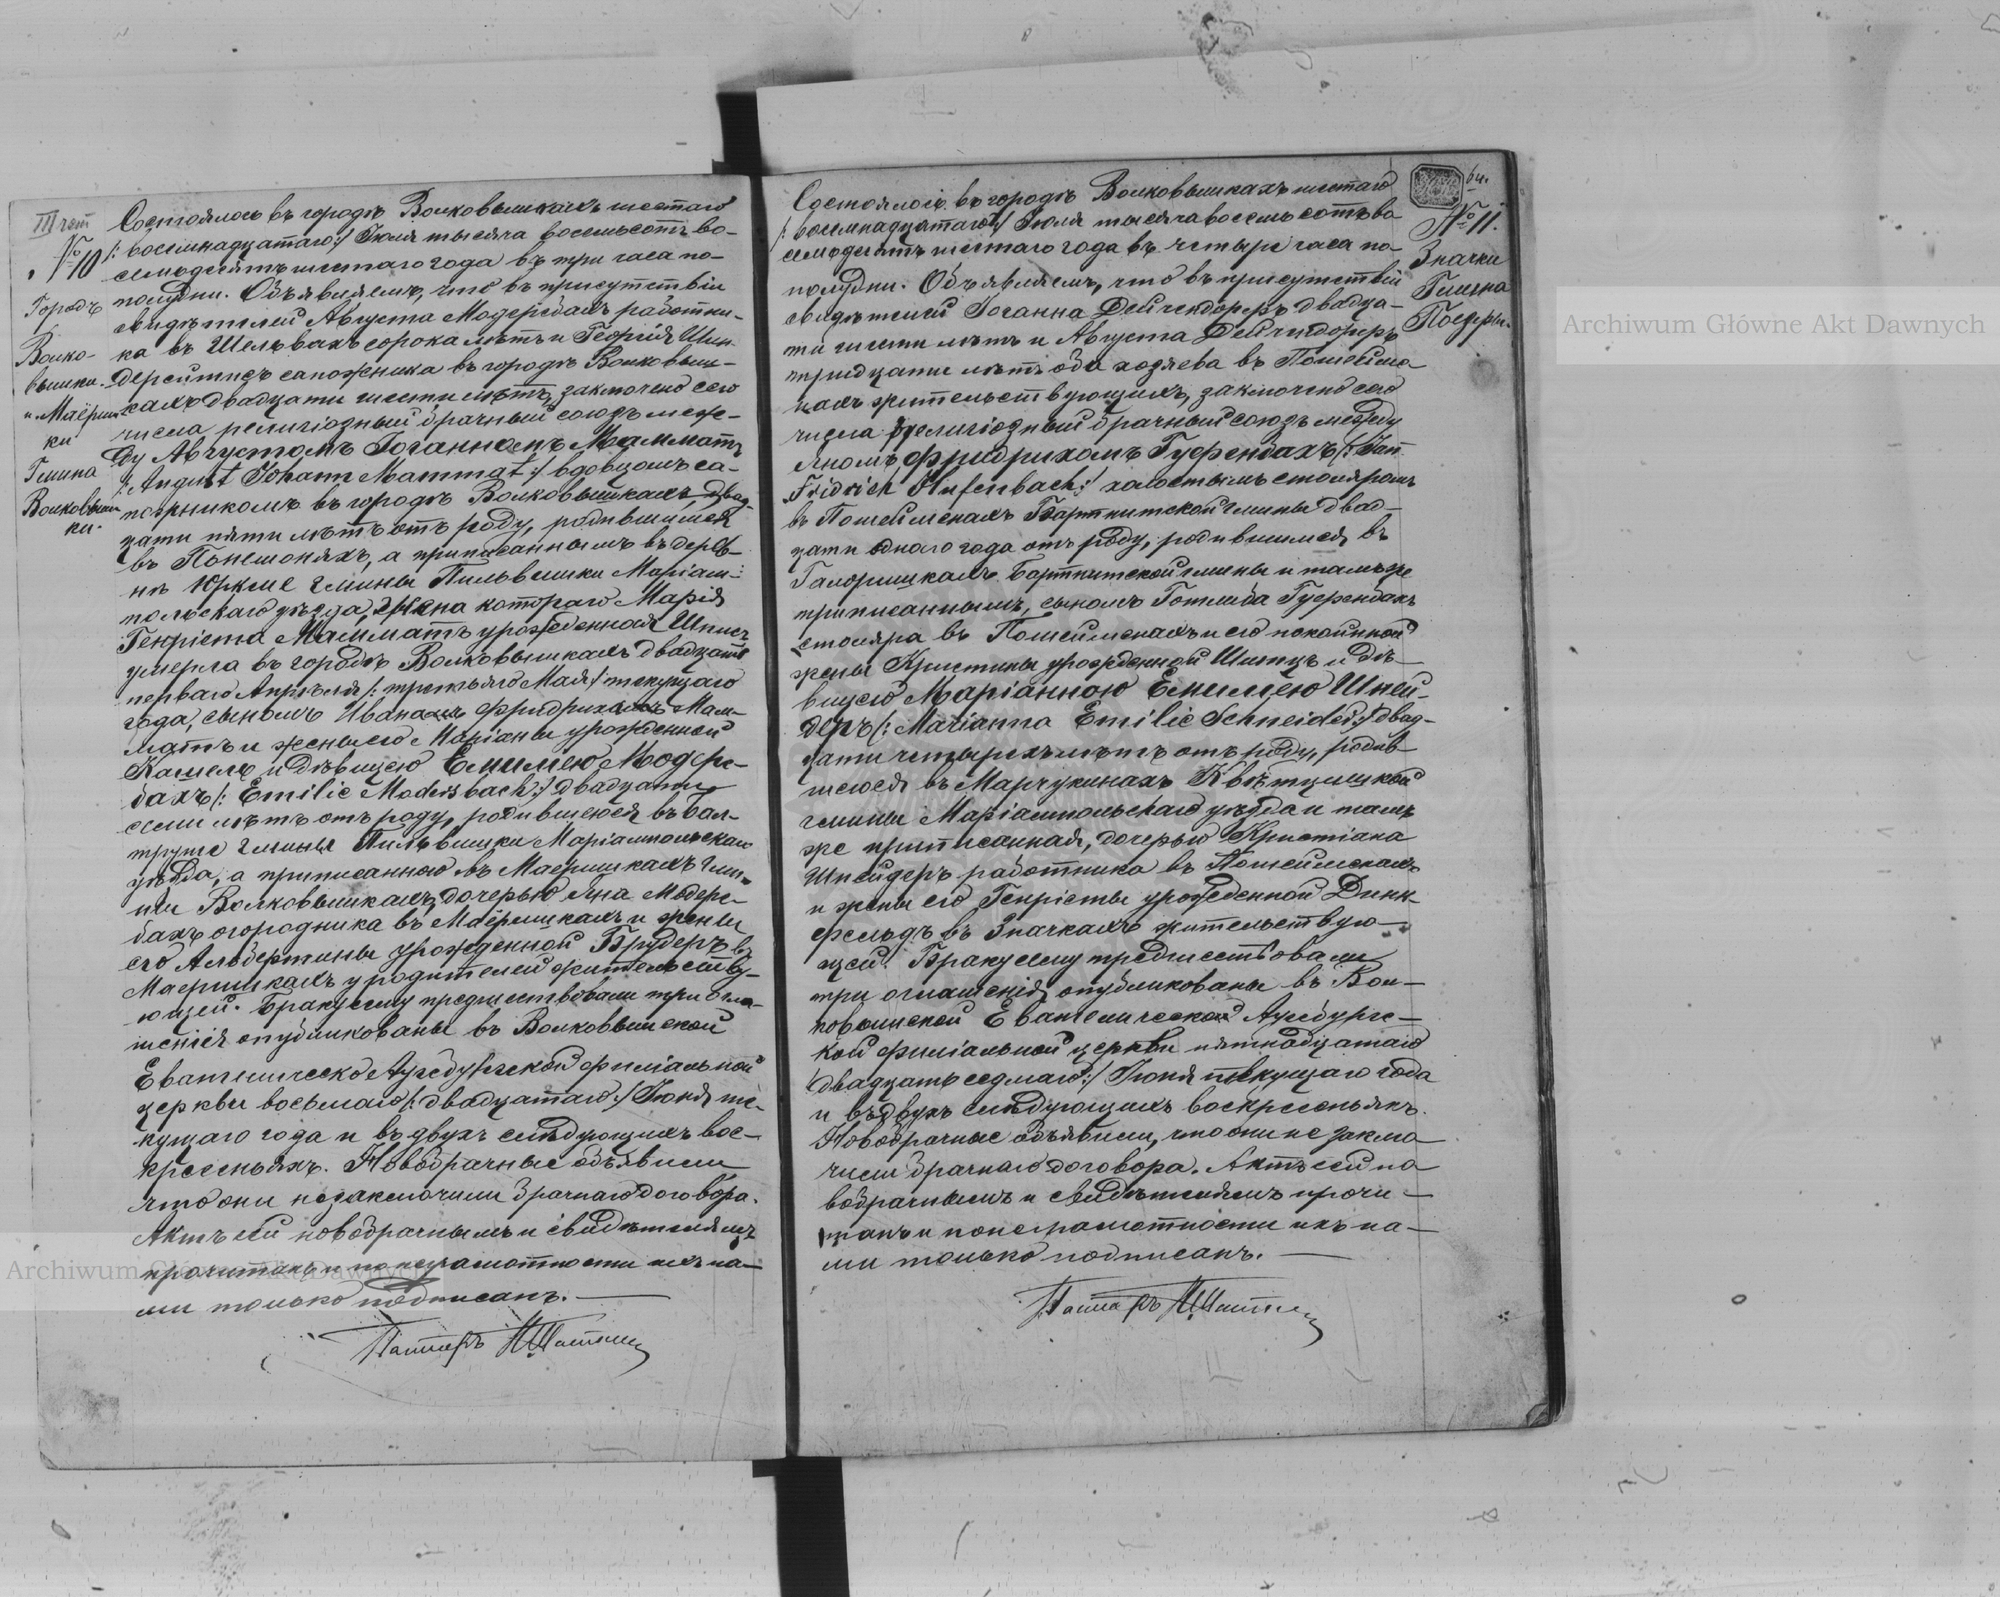 III чет
№ 10
Городъ
Волко-
вышки.
и Маёриш-
ки
Гмина
Волковыш-
ки.
Состоялось въ городѣ Волковышкахъ шестаго
/: восемнадцатаго :/ Іюля тысяча восемьсотъ во-
семьдесятъ шестаго года въ три часа по-
полудни. Объявляемъ, что въ присутствіи
свидѣтелей Августа Модерсбахъ работни-
ка въ Шельвахъ сорока лѣтъ и Георгія
сапожника въ городѣ Волковыш-
кахъ двадцати шести лѣтъ, заключенъ сего
числа религіозный брачный союзъ меж-
ду Августомъ Іоганномъ Мамматъ
/: August Johann Mammat :/ вдовцомъ са-
пожникомъ въ городѣ Волковышкахъ, двад-
цати пяти лѣтъ отъ роду, родившимся
въ Понемоняхъ, а приписаннымъ въ дерев-
нѣ гмины Пильвишки Маріам-
польскаго уѣзда, жена котораго Марія
Генріета Мамматъ урожденная
умерла въ городѣ Волковышкахъ двадцать
перваго Апрѣля /: третьяго Мая :/ текущаго
года, сыномъ Ивана Фридриха Мам-
матъ и жены его Маріаны урожденной
и дѣвицею Емилею Модерс-
бахъ /: Emilie Modersbach :/ двадцати
семи лѣтъ отъ роду, родившеюся въ Бал-
трушe гмины Пильвишки Маріампольскаго
уѣзда, а приписанною въ Маёришкахъ гми-
ны Волковышкахъ, дочерью Яна Модерс-
бахъ огородника въ Маёришкахъ и жены
его Албертины урожденной Брудеръ въ
Маёришкахъ у родителей жительству-
ющей. Браку сему предшествовали три огла-
шенія опубликованы въ Волковышской
Евангелическо Аугсбургской филіальной
церкви восьмаго /: двадцатаго :/ Іюня те-
кущаго года и въ двухъ слѣдующихъ вос-
кресеньяхъ. Новобрачные объявили
что они незаключили брачнаго договора.
Актъ сей новобрачнымъ и свидѣтелямъ
прочитанъ и по неграмотности ихъ на-
ми только подписанъ.
Пасторъ
64.
№ 11.
Значки
Гмина
Состоялось въ городѣ Волковышкахъ шестаго
/: восемнадцатаго :/ Іюля тысяча восемьсотъ во-
семьдесятъ шестаго года въ четыре часа по-
полудни. Объявляемъ, что въ присутствіи
свидѣтелей Іоганна Дейчендоръ двадца-
ти шести лѣтъ и Августа
тридцати лѣтъ оба хозяева въ Пошейме-
нахъ жительствующихъ, заключенъ сего
числа религіозный брачный союзъ между
Яномъ Фридрихомъ Гуфенбахъ /: Jan
Fridrich Hufenbach :/ холостымъ столяромъ
въ Пошейменахъ Бартнитской гмины двад-
цати одного года отъ роду, родившимся въ
Бартнитской гмины и тамъ же
приписаннымъ, сыномъ Готлиба Гуфенбахъ
столяра въ Пошейменахъ и его покойной
жены Кристины урожденной и дѣ-
вицею Маріанною Емилею Шней-
деръ /: Marianna Emilie Schneider :/ двад-
цати четырехъ лѣтъ отъ роду, родив-
шеюся въ Марчукинахъ Квѣтцишкой
гмины Маріампольскаго уѣзда и тамъ
же приписанная, дочерью Кристіана
Шнейдеръ работника въ Пошейменахъ
и жены его Генріеты урожденной Динк-
фельдъ въ Значкахъ жительствую-
щей. Браку сему предшествовали
три оглашенія опубликованы въ Вол-
ковышской Евангелической Аугсбургс-
кой филіальной церкви пятнадцатаго
/двадцать седмаго :/ Іюня текущаго года
и въ двухъ слѣдующихъ воскресеньяхъ.
Новобрачные объявили, что они не заклю-
чили брачнаго договора. Актъ сей но-
вобрачнымъ и свидѣтелямъ прочи-
танъ и по неграмотности ихъ на-
ми только подписанъ.
Пасторъ
Archiwum Główne Akt Dawnych
Archiwum Główne Akt Dawnych